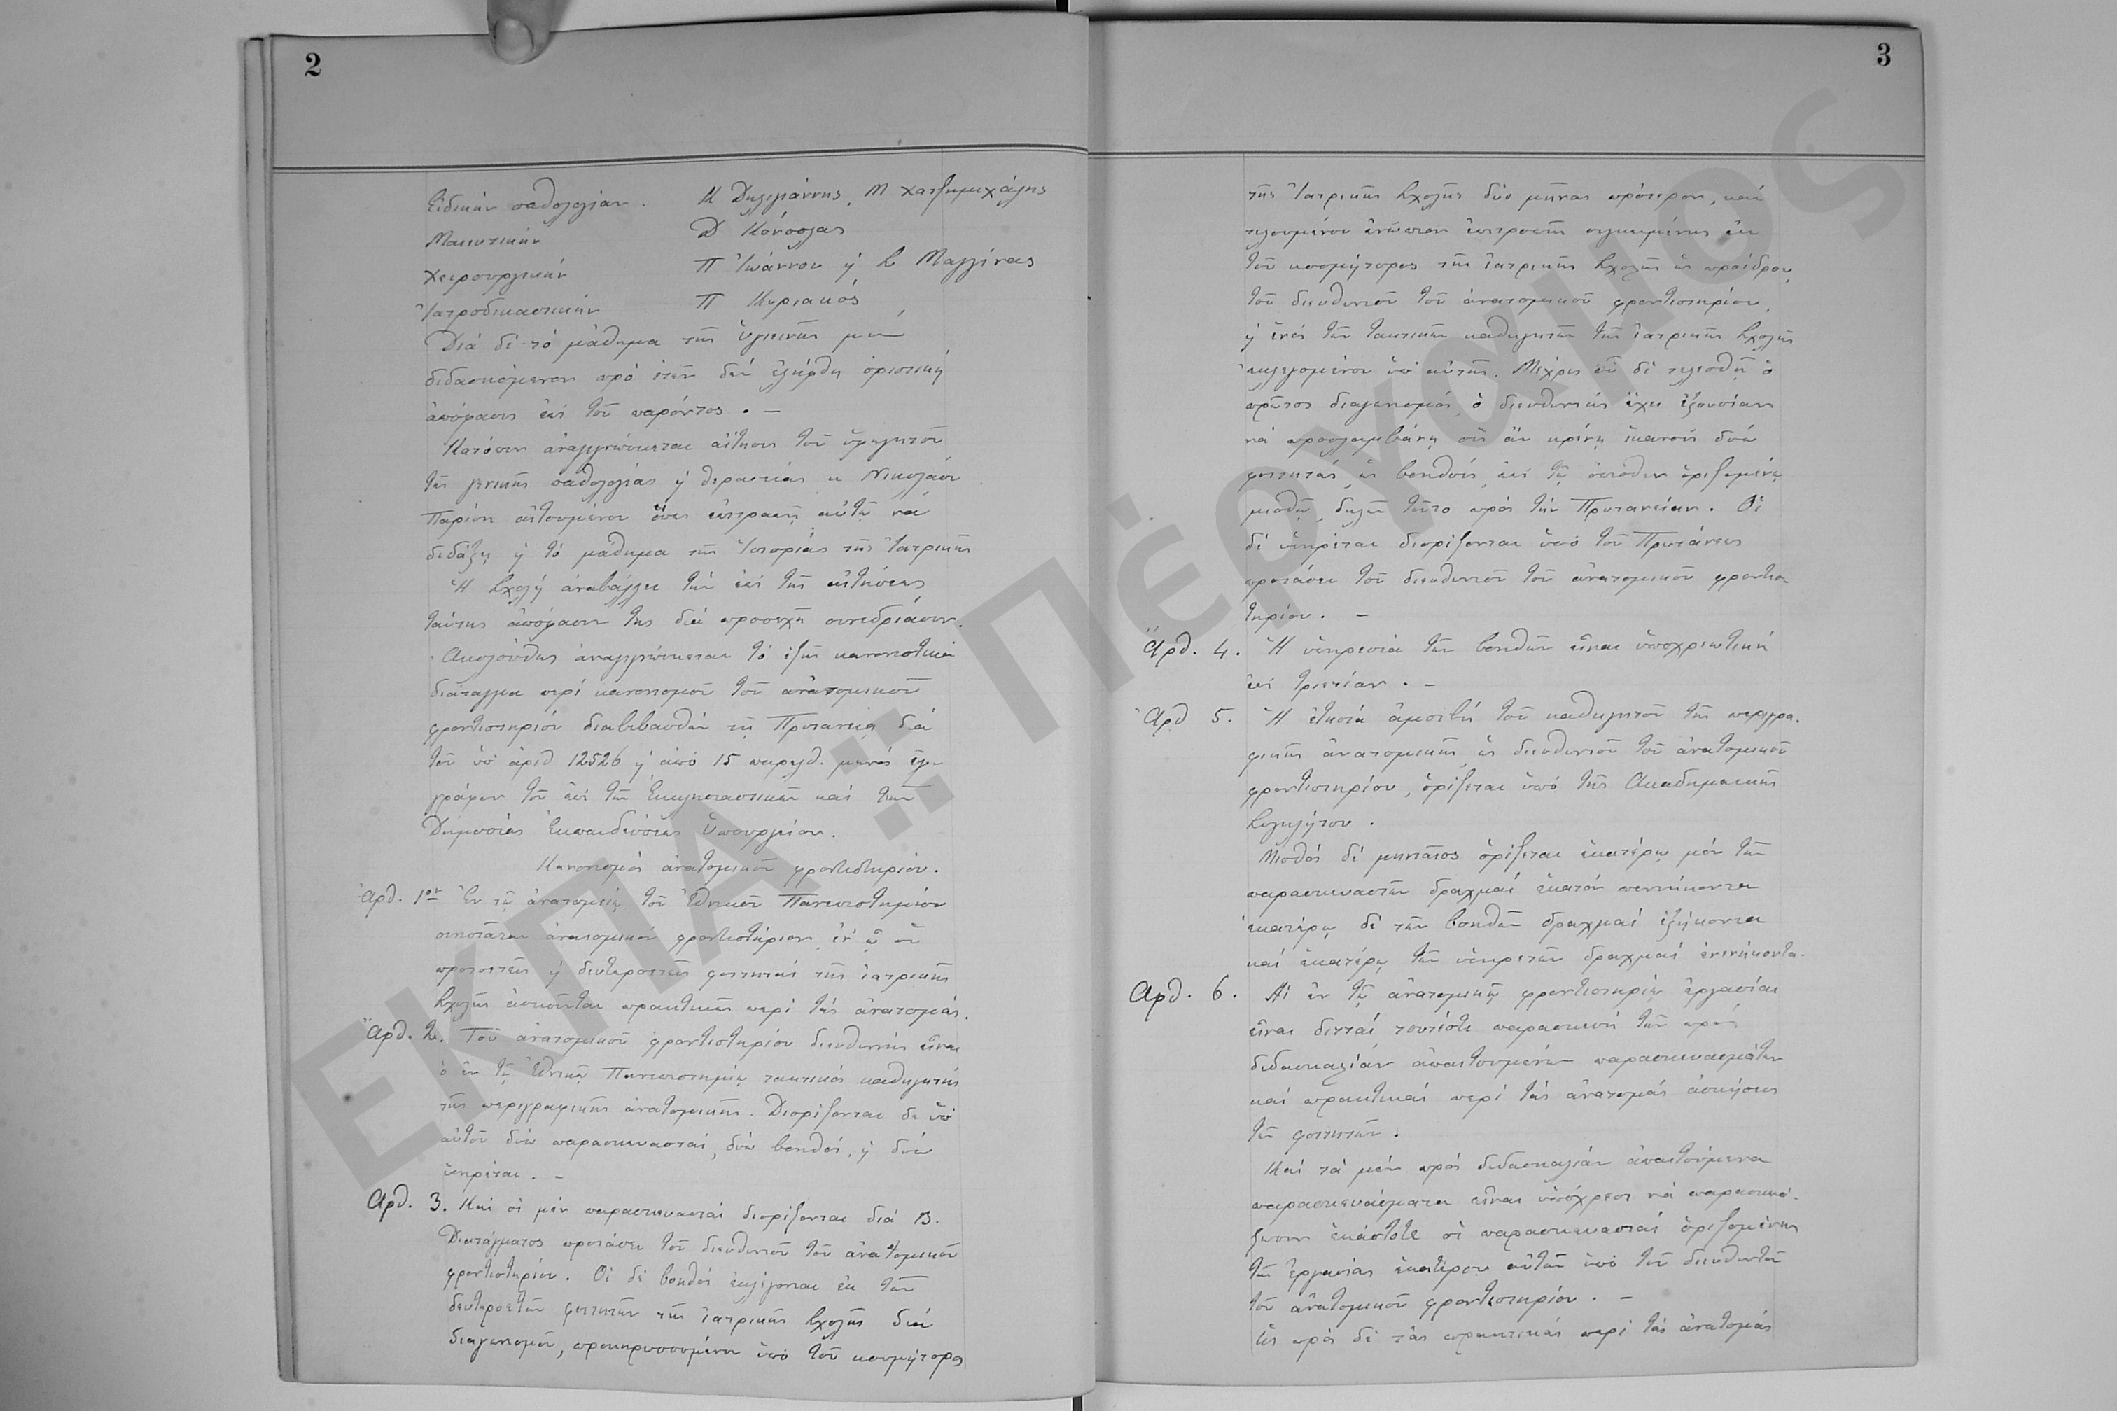 2
Εἰδικὴν παθολογίαν. Κ Δηλγιάννης, Μ Χατζημιχάλης
Μαιευτικὴν Δ Κόνσολας
Χειρουργικὴν Π Ἰωάννου ἢ Σ Μαγγίνας
Ἰατροδικαστικὴν Π Κυριακός
Διὰ δὲ τὸ μάθημα τῆς ὑγιεινῆς μὴ
διδασκόμενον πρὸ ἐτῶν δὲν ἐλήφθη ὁριστικὴ
ἀπόφασις ἐπὶ τοῦ παρόντος. –
Κατόπιν ἀναγινώσκεται αἴτησις τοῦ ὑφηγητοῦ
τῆς γενικῆς παθολογίας ἢ θεραπείας κ Νικολάου
Παρίση αἰτουμένου ὅπως ἐπιτραπῇ αὐτῷ νὰ
διδάξῃ ἢ τὸ μάθημα τῆς Ἱστορίας τῆς Ἰατρικῆς
Ἡ Σχολὴ ἀναβάλλει τὴν ἐπὶ τῆς αἰτήσεως
ταύτης ἀπόφασιν της διὰ προσεχῆ συνεδρίασιν.
Ἀκολούθως ἀναγινώσκεται τὸ ἑξῆς κανονιστικὸν
διάταγμα περὶ κανονισμοῦ τοῦ ἀνατομικοῦ
φροντιστηρίου διαβιβασθὲν τῇ Πρυτανείᾳ διὰ
τοῦ ὑπ' ἀριθ 12526 ἢ ἀπὸ 15 παρελθ. μηνὸς ἐγ-
γράφου τοῦ ἐπὶ τῶν Ἐκκλησιαστικῶν καὶ τῆς
Δημοσίας Ἐκπαιδεύσεως Ὑπουργείου.
Κανονισμὸς ἀνατομικοῦ φροντιστηρίου.
Ἀρθ. 1ον Ἐν τῷ ἀνατομείῳ τοῦ Ἐθνικοῦ Πανεπιστημίου
συνιστᾶται ἀνατομικὸν φροντιστήριον ἐν ᾧ οἱ
πρωτοετεῖς ἢ δευτεροετεῖς φοιτηταὶ τῆς ἰατρικῆς
Σχολῆς ἀσκοῦνται πρακτικῶς περὶ τὰς ἀνατομάς.
Ἀρθ. 2. Τοῦ ἀνατομικοῦ φροντιστηρίου διευθυντὴς εἶναι
ὁ ἐν τῷ Ἐθνικῷ Πανεπιστημίῳ τακτικὸς καθηγητὴς
τῆς περιγραφικῆς ἀνατομικῆς. Διορίζονται δὲ ὑπ'
αὐτὸν δύο παρασκευασταί, δύο βοηθοί, ἢ δύο
ὑπηρέται. –
Ἀρθ. 3. Καὶ οἱ μὲν παρασκευασταὶ διορίζονται διὰ Β.
Διατάγματος προτάσει τοῦ διευθυντοῦ τοῦ ἀνατομικοῦ
φροντιστηρίου. Οἱ δὲ βοηθοὶ ἐκλέγονται ἐκ τῶν
δευτεροετῶν φοιτητῶν τῆς ἰατρικῆς Σχολῆς διὰ
διαγωνισμοῦ, προκηρυσσομένου ὑπὸ τοῦ κοσμήτορος
3
τῆς Ἰατρικῆς Σχολῆς δύο μῆνας πρότερον, καὶ
τελουμένου ἐνώπιον ἐπιτροπῆς συγκειμένης ἐκ
τοῦ κοσμήτορος τῆς ἰατρικῆς Σχολῆς ὡς προέδρου,
τοῦ διευθυντοῦ τοῦ ἀνατομικοῦ φροντιστηρίου,
ἢ ἑνὸς τῶν τακτικῶν καθηγητῶν τῆς ἰατρικῆς Σχολῆς
ἐκλεγομένου ὑπ' αὐτῆς. Μέχρις οὗ δὲ τελεσθῇ ὁ
πρῶτος διαγωνισμός, ὁ διευθυντὴς ἔχει ἐξουσίαν
νὰ προσλαμβάνῃ οὓς ἂν κρίνῃ ἱκανοὺς δύο
φοιτητάς, ὡς βοηθοὺς ἐπὶ τῷ ὄπισθεν ὁριζομένῳ
μισθῷ, δηλῶν τοῦτο πρὸς τὴν Πρυτανείαν. Οἱ
δὲ ὑπηρέται διορίζονται ὑπὸ τοῦ Πρυτάνεως
προτάσει τοῦ διευθυντοῦ τοῦ ἀνατομικοῦ φροντισ-
τηρίου. –
Ἀρθ. 4. Ἡ ὑπηρεσία τῶν βοηθῶν εἶναι ὑποχρεωτικὴ
ἐπὶ τριετίαν. –
Ἀρθ 5. Ἡ ἐτησία ἀμοιβὴ τοῦ καθηγητοῦ τῆς περιγρα-
φικῆς ἀνατομικῆς ὡς διευθυντοῦ τοῦ ἀνατομικοῦ
φροντιστηρίου, ὁρίζεται ὑπὸ τῆς Ἀκαδημαϊκῆς
Συγκλήτου.
Μισθὸς δὲ μηνιαῖος ὁρίζεται ἑκατέρῳ μὲν τῶν
παρασκευαστῶν δραχμαὶ ἑκατὸν πεντήκοντα
ἑκατέρῳ δὲ τῶν βοηθῶν δραχμαὶ ἑξήκοντα
καὶ ἑκατέρῳ τῶν ὑπηρετῶν δραχμαὶ ἐνενήκοντα.
Ἀρθ. 6. Αἱ ἐν τῷ ἀνατομικῷ φροντιστηρίῳ ἐργασίαι
εἶναι διτταὶ τουτέστι παρασκευὴ τῶν πρὸς
διδασκαλίαν ἀπαιτουμένων παρασκευασμάτων
καὶ πρακτικαὶ περὶ τὰς ἀνατομὰς ἀσκήσεις
τῶν φοιτητῶν.
Καὶ τὰ μὲν πρὸς διδασκαλίαν ἀπαιτούμενα
παρασκευάσματα εἶναι ὑπόχρεοι νὰ παρασκευά-
ζωσιν ἑκάστοτε οἱ παρασκευασταὶ ὁριζομένης
τῆς ἐργασίας ἑκατέρου αὐτῶν ὑπὸ τοῦ διευθυντοῦ
τοῦ ἀνατομικοῦ φροντιστηρίου. –
Ὡς πρὸς δὲ τὰς πρακτικὰς περὶ τὰς ἀνατομὰς
ΕΚΠΑ :: Πέργαμος